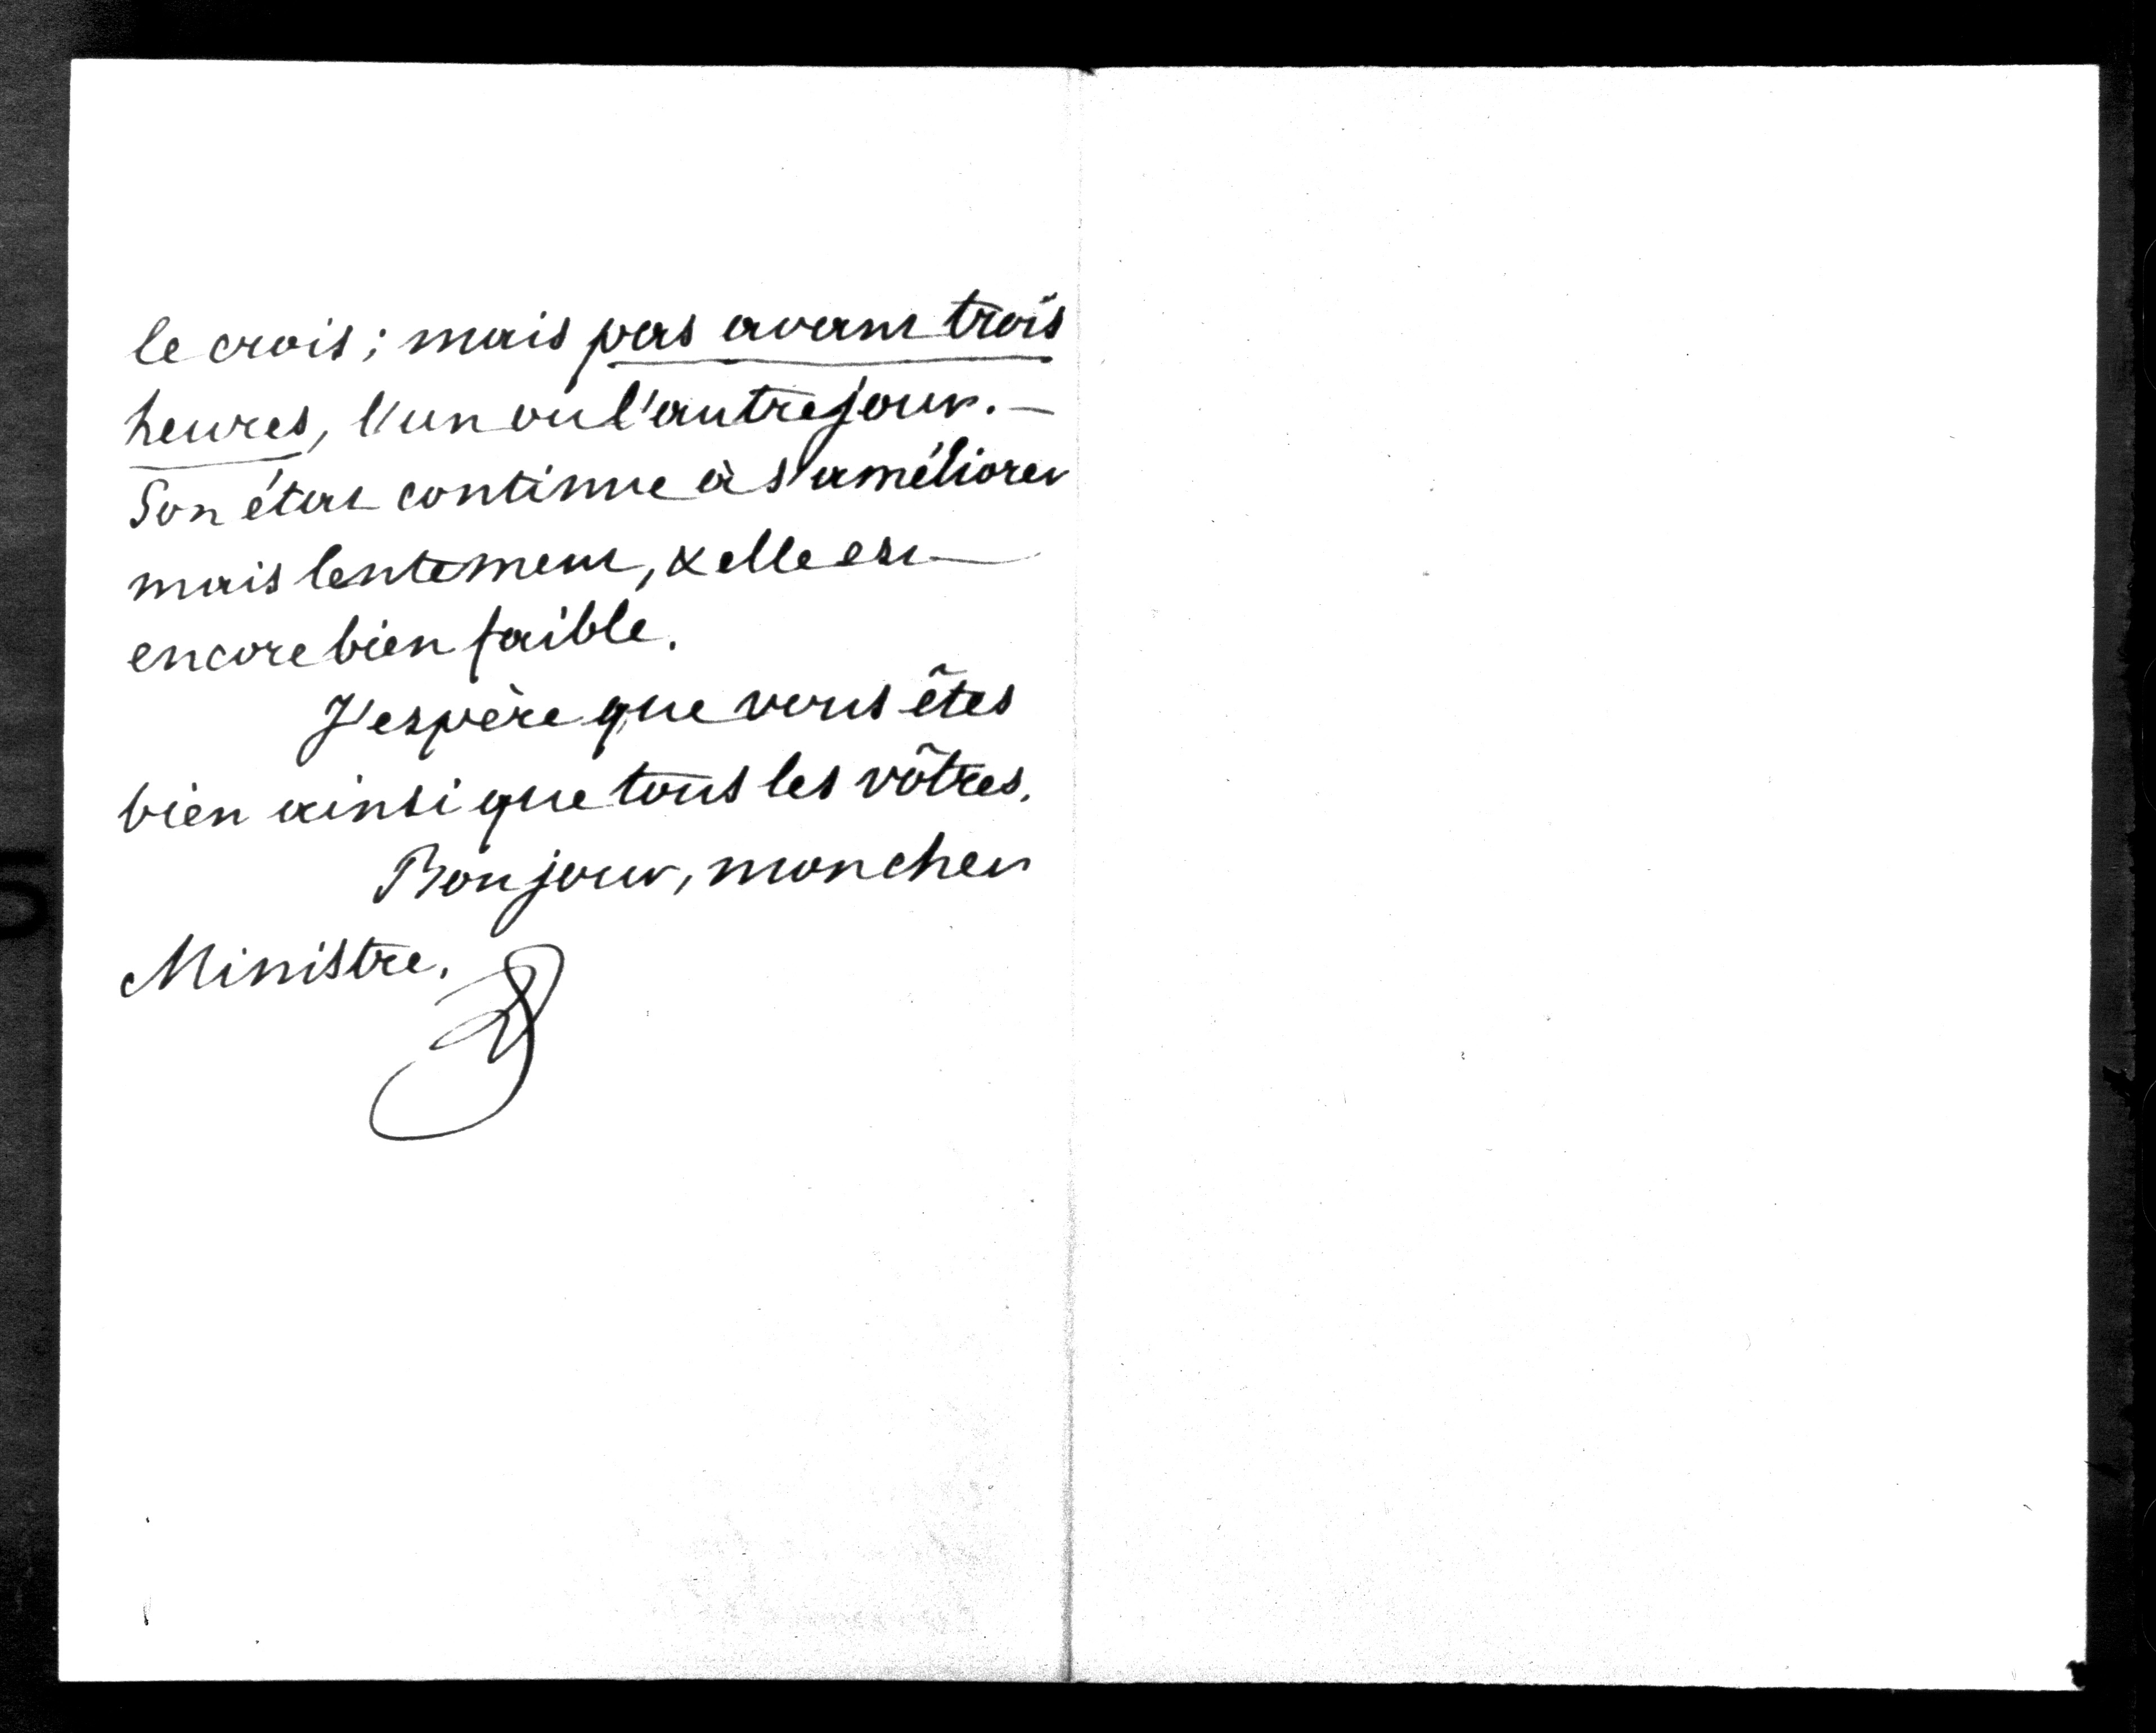 le crois; mais pas avant trois
heures, l'un ou l'autre jour. —
Son état continue à s'améliorer
mais lentement, & elle est
encore bien faible.
J'espère que vous êtes
bien ainsi que tous les vôtres.
Bonjour, mon cher
Ministre.